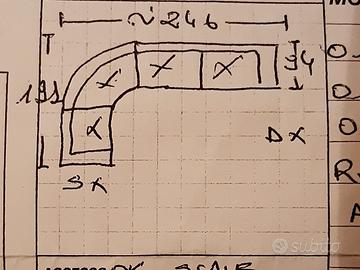 ~246
X X X 94
191
X
DX
SX
O
O
O
R
A
subito
SCALE